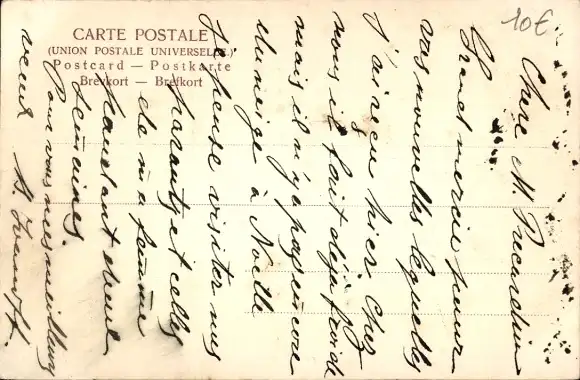 CARTE POSTALE
(UNION POSTALE UNIVERSELLE.)
Postcard — Postkarte
Brevkort — Brefkort
10€
Chere M.
Grand merci pour
vos nouvelles lequelles
j'ai recu hier Chez
nous il fait déja froide
mais il n'y a pas encore
du neige à Noëlle
Je pense visiter mes
parants et celles
de ma femme
pendant
semaines
Pour vous mes meilleurs
veux